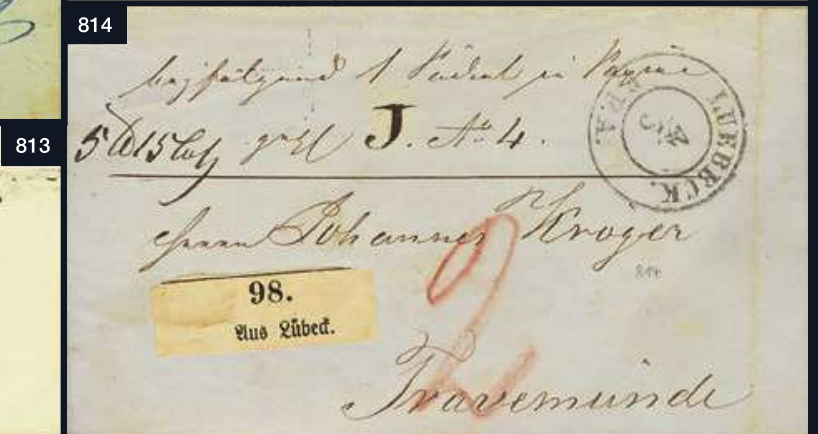 814
813
beyfolgend 1 Packet in Papier
5 ℔ 15 Loth gez. J. No 4.
LUEBECK. ST.P.A.
Herrn Johannes Kroger
814
98.
Aus Lübeck.
2
Travemünde